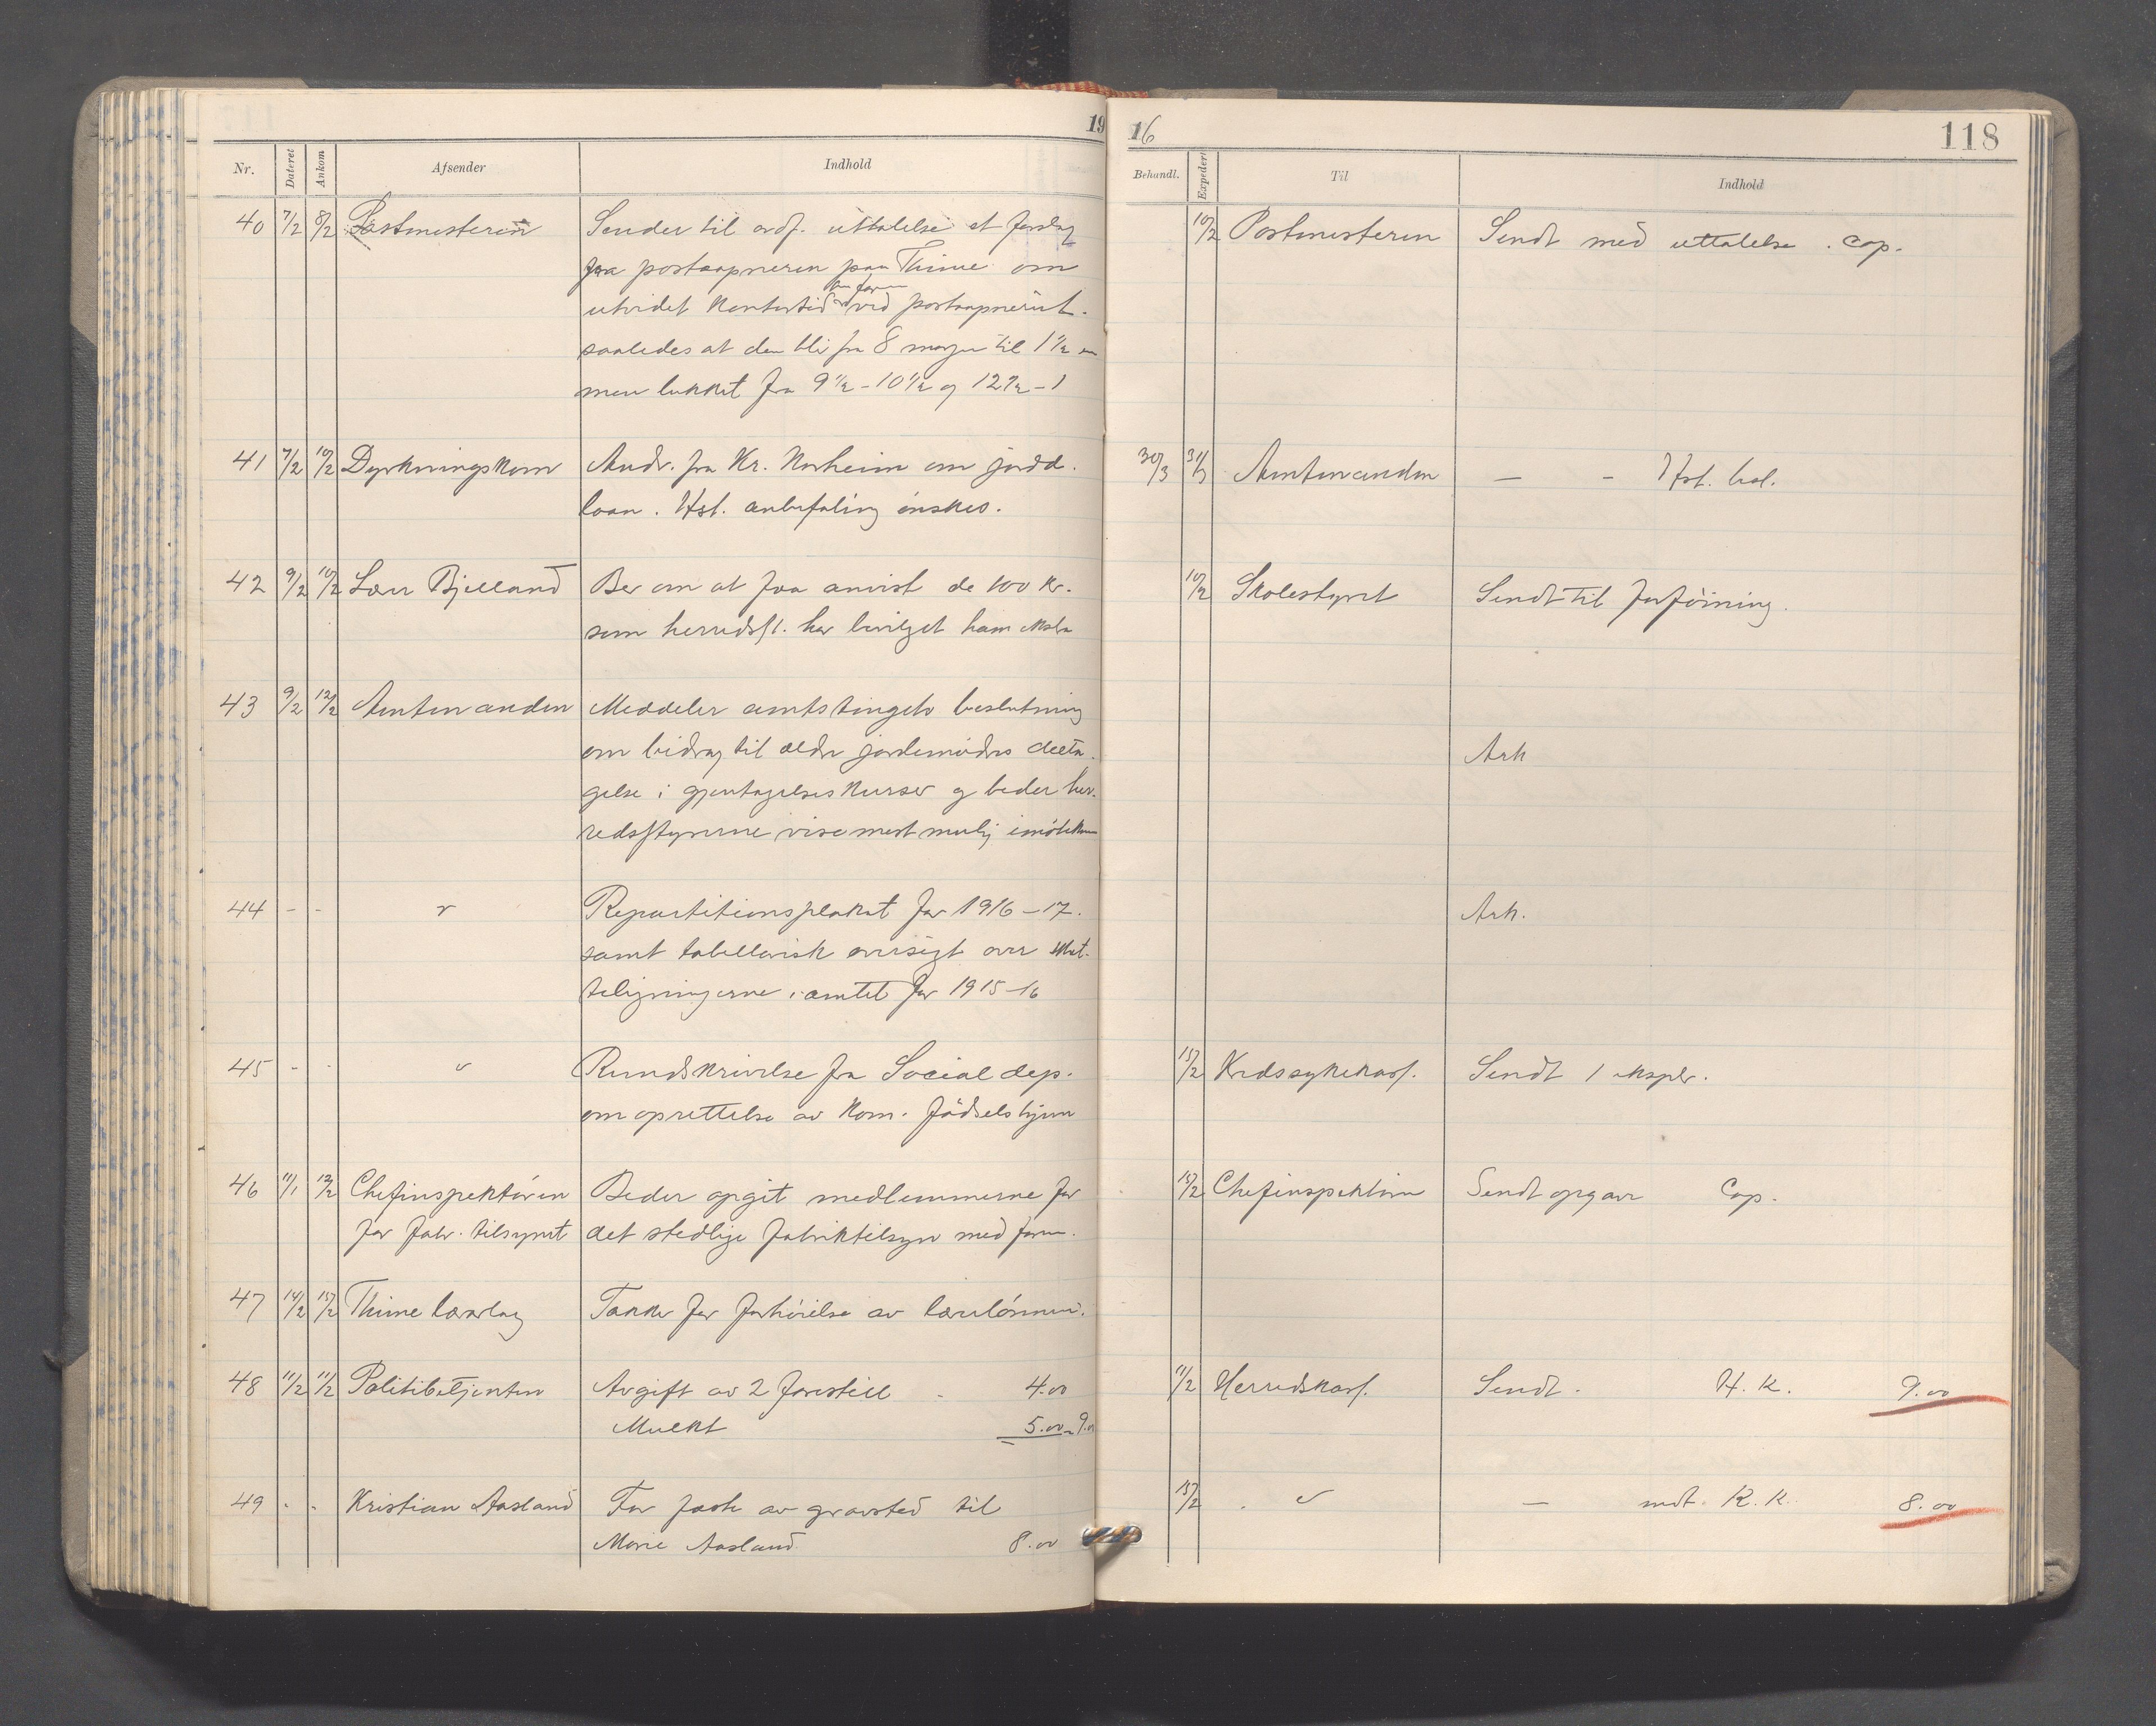 19 16
118
Nr. Dateret Ankom Afsender Indhold Behandl. Expedert Til Indhold
40 7/2 8/2 Postmesteren Sender til ordf. uttalelse et forslag 10/2 Postmesteren Sendt med uttalelse . Cop.
fra postaapneren paa Thime om
utvidet kontortid ved postaapneriet.
saaledes at den bli fra 8 morgen til 1 1/2
men lukket fra 9 1/2 - 10 1/2 og 12 1/2 - 1
41 7/2 10/2 Dyrkningskom Andr. fra Kr. Norheim om jordd. 30/3 31/3 Amtmanden — - Hst. besl.
laan. Hst. anbefaling ønskes.
42 9/2 10/2 Lærer Bjelland Ber om at faa anvist de 100 kr. 10/2 Skolestyret Sendt til forføining.
som herredsst. har bevilget ham ekstra
43 9/2 12/2 Amtmanden Meddeler amtstingets beslutning
om bidrag til ældre jordemødres delta- Ark
gelse i gjentagelseskurser og beder her-
redsstyrerne vise mest mulig imøtekom
44 - - " Repartitionsplakat for 1916-17. Ark.
samt tabellarisk oversigt over skat-
teligningerne i amtet for 1915-16
45 - - " Rundskrivelse fra Social dep. 15/2 Kredssykekass. Sendt 1 expl.
om oprettelse av kom. fødselshjem
46 11/1 12/2 Chefinspektøren Beder opgit medlemmerne for 15/2 Chefinspektøren Sendt opgave Cop.
for fabr. tilsynet det stedlige fabriktilsyn med form.
47 14/2 15/2 Thime lærerlag Takker for forhøielse av lærerlønnen.
48 11/2 11/2 Politibetjenten Avgift av 2 forestill - 4.00 11/2 Herredskass. Sendt. H. K. 9.00
Mulkt 5.00 - 9.00
49 - - Kristian Aasland For fæste av gravsted til 15/2 . " — mdt. K. K. 8.00
Marie Aasland. 8.00